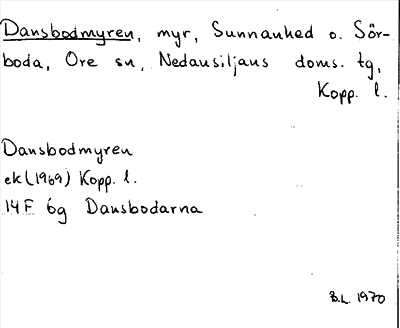 Dansbodmyren, myr, Sunnanhed o. Sör-
boda, Ore sn, Nedansiljans doms. tg,
Kopp. l.
Dansbodmyren
ek (1969) Kopp. l.
14 F 6g Dansbodarna
B.L. 1970